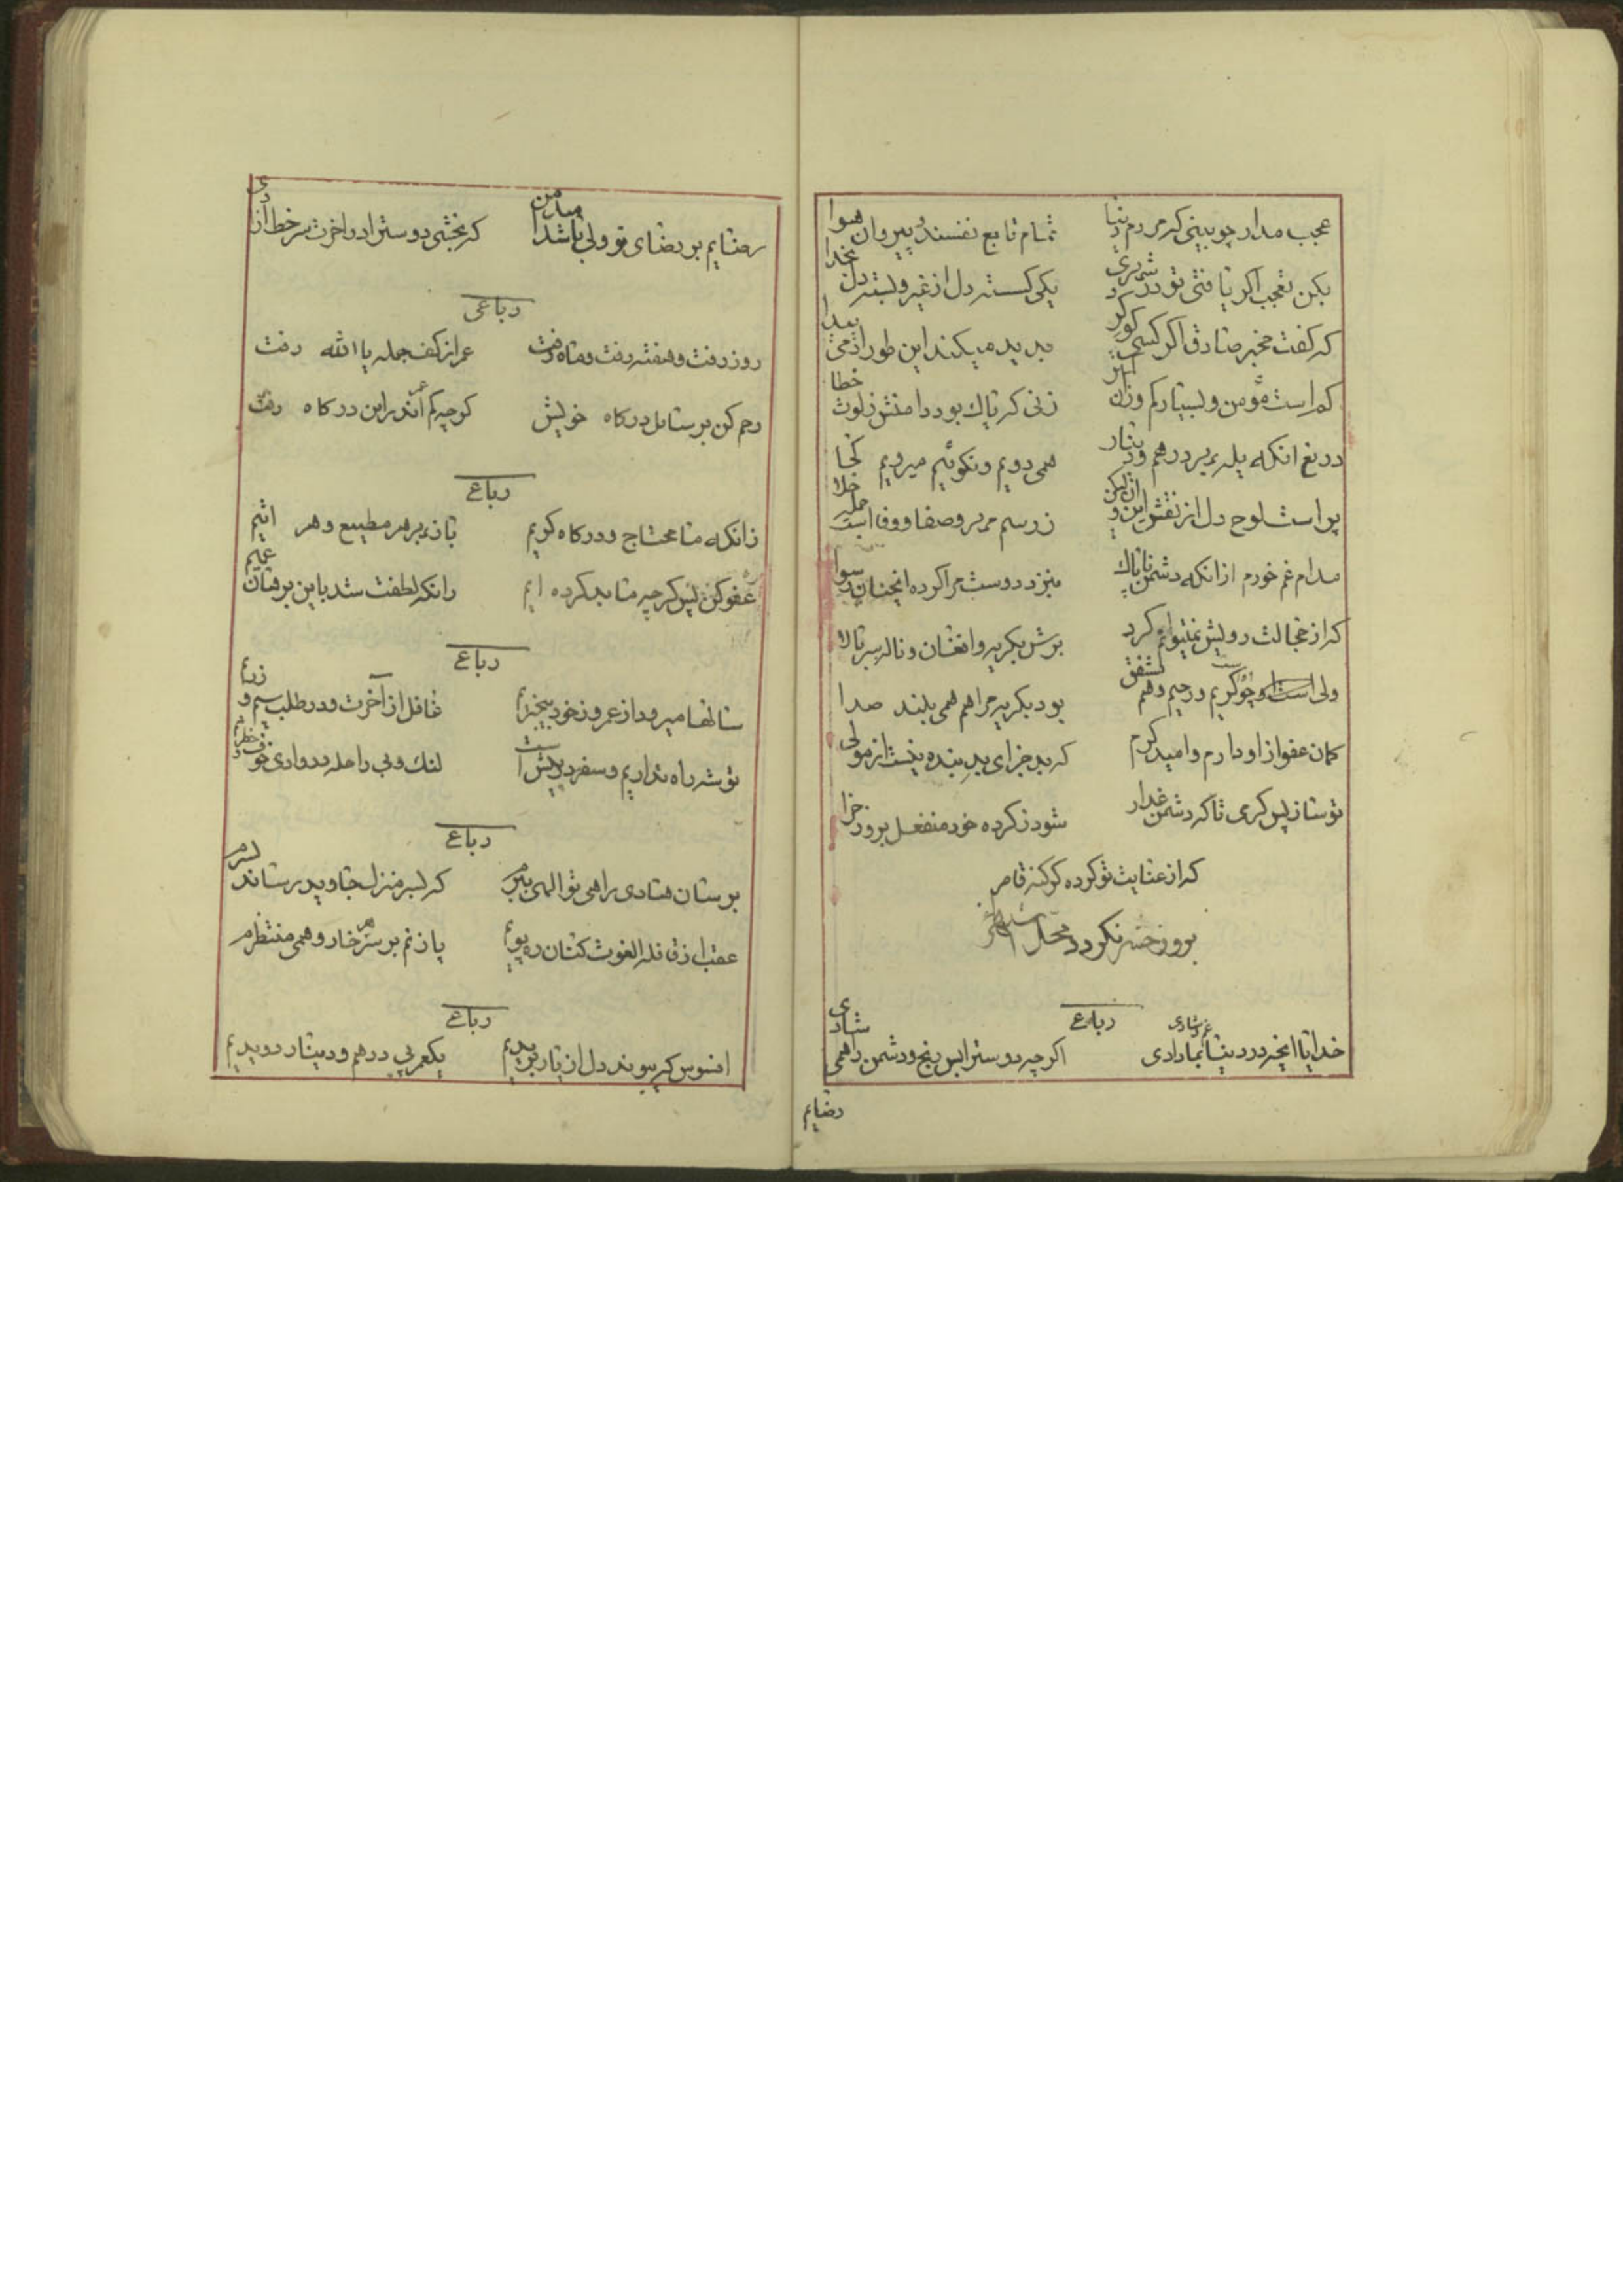 عجب مدار چو بینی که مردم دنیا تمام تابع نفسند و پیروان هوا
بکن تعجب اگر یافتی تو در شهری یکی کسسته دل از غیر و بسته دل بخدا
که کفت مخبر صادق اکر کسی کوکرد پدید میکند این طور از می پیدا
کم است مؤمن و بسیار کم وزان کمتر زنی که پاک بود دامنش ز لوث خطا
دریغ انکه پله بریدرهم و دینار همی دویم و نکوئیم میرویم کجا
پر است لوح دل از نقش این و آن لیکن ز رسم مهر و صفا و وفا است جمله خلا
مدام غم خورم از انکه دشمن ناپاک بنزد دوست مرا کرده انچنان رسوا
که از خجالت رویش نمیتوانم کرد برش بکریه و افغان و ناله سر بالا
ولی چو کریم و رحیم و هم مشفق بود بکریه مرا هم همی بلند صدا
کمان عفو از او دارم و امید کرم که بد جزای بد بنده نیست از مولی
تو ساز پس کرمی تا که دشمن غدار شود ز کرده خود منفعل بروز جزا
که از عنایت تو کرده کر کنه قاصر
بروز حشر نکردد محل
رباعی
خدایا انچه در دنیا بما دادی غم و شادی اکرچه دوسترا بس رنج و دشمن را همی شادی
رضایم
رضایم بر رضای تو ولی باشد امید من که بخشی دوسترا در اخرت سر خط ازادی
رباعی
روز رفت و هفته رفت و ماه رفت عمر از کف جمله یا الله رفت
رحم کن بر سایل درکاه خویش کوچه کم اندر این درکاه رفت
رباعی
زانکه ما محتاج و درکاه کریم باز بر هر مطیع و هر اثیم
عفو کن پس کرچه ما بد کرده ایم زانکه لطفت شد باین برهان عمیم
رباعی
سالها میرود از عمر و ز خود بیخبرم غافل از آخرت و در طلب سیم و زرم
توشه راه نداریم و سفر در پیش است لنک و بی راحله در وادی خوف و خطرم
رباعی
برسان هادی راهی تو الهی بسرم که بسر منزل جاوید رساند
عقب از قافله الغوث کنان ره پویم پا زنم بر سر هر خار و همی منتظرم
رباعی
افسوس که پیوند دل از یار بریدیم یکعمر پی درهم و دینار دویدیم